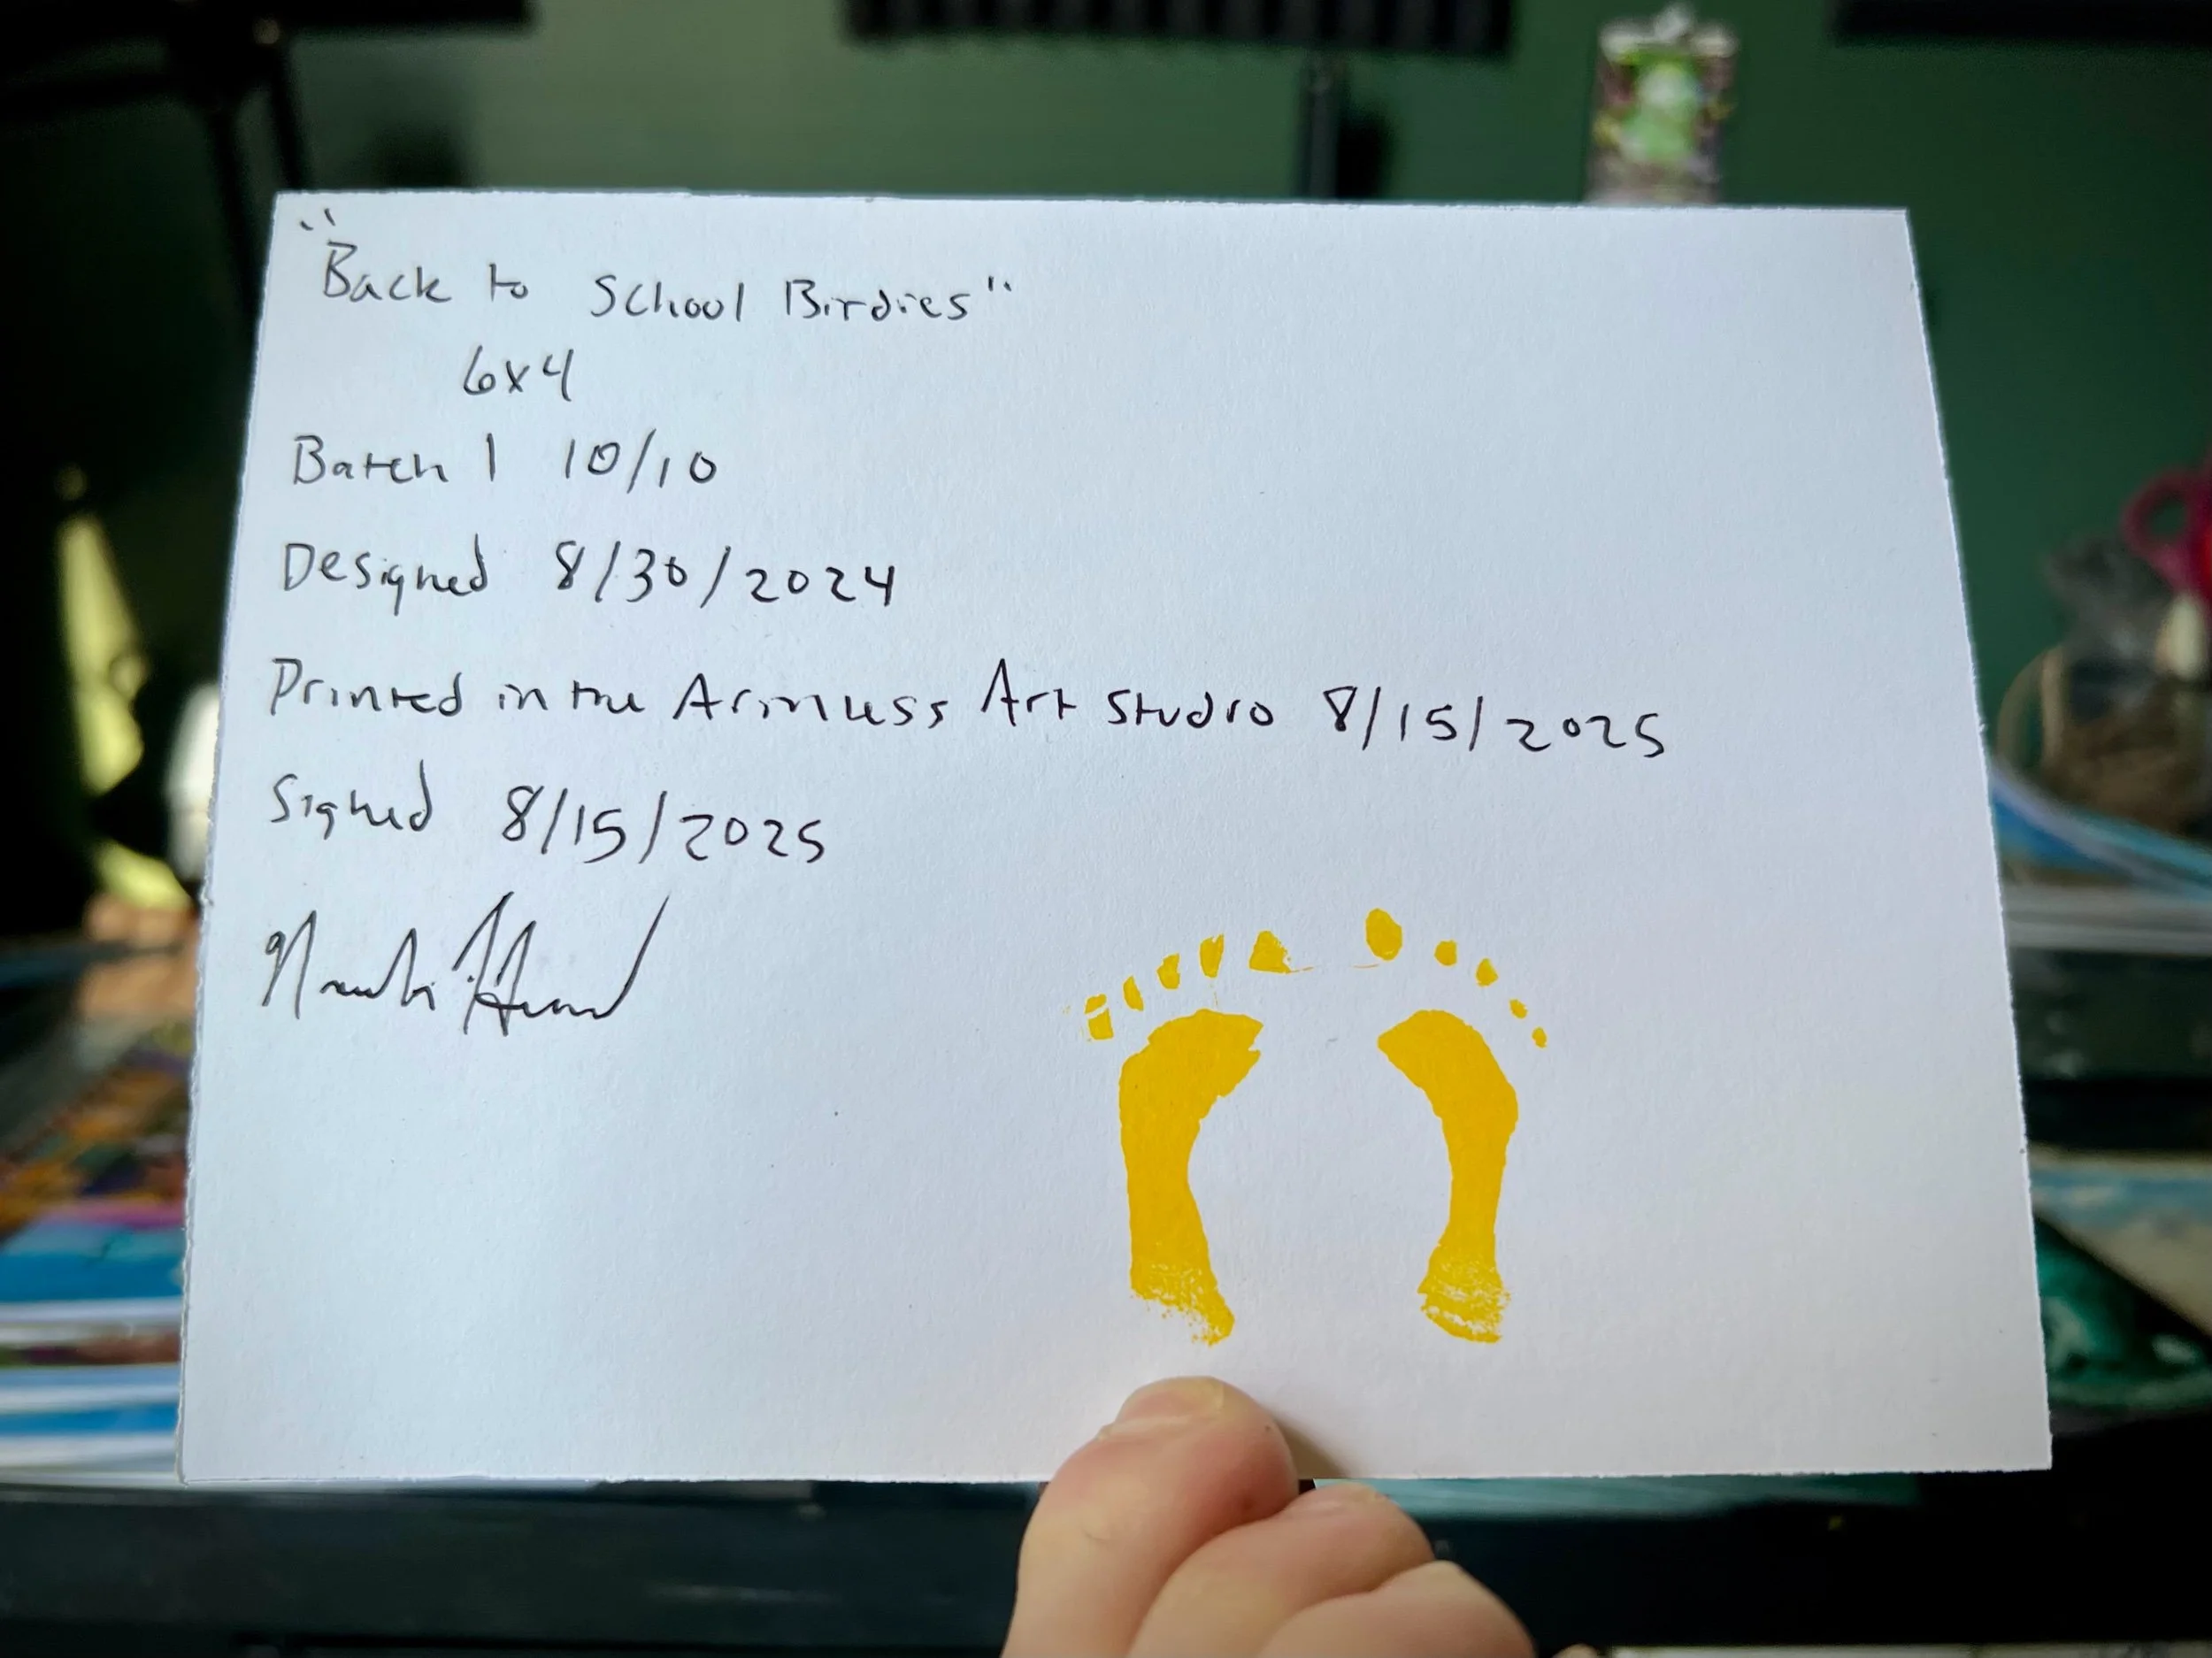 "Back to School Birdies"
6x4
Batch 1 10/10
Designed 8/30/2024
Printed in the Armuss Art Studio 8/15/2025
Signed 8/15/2025